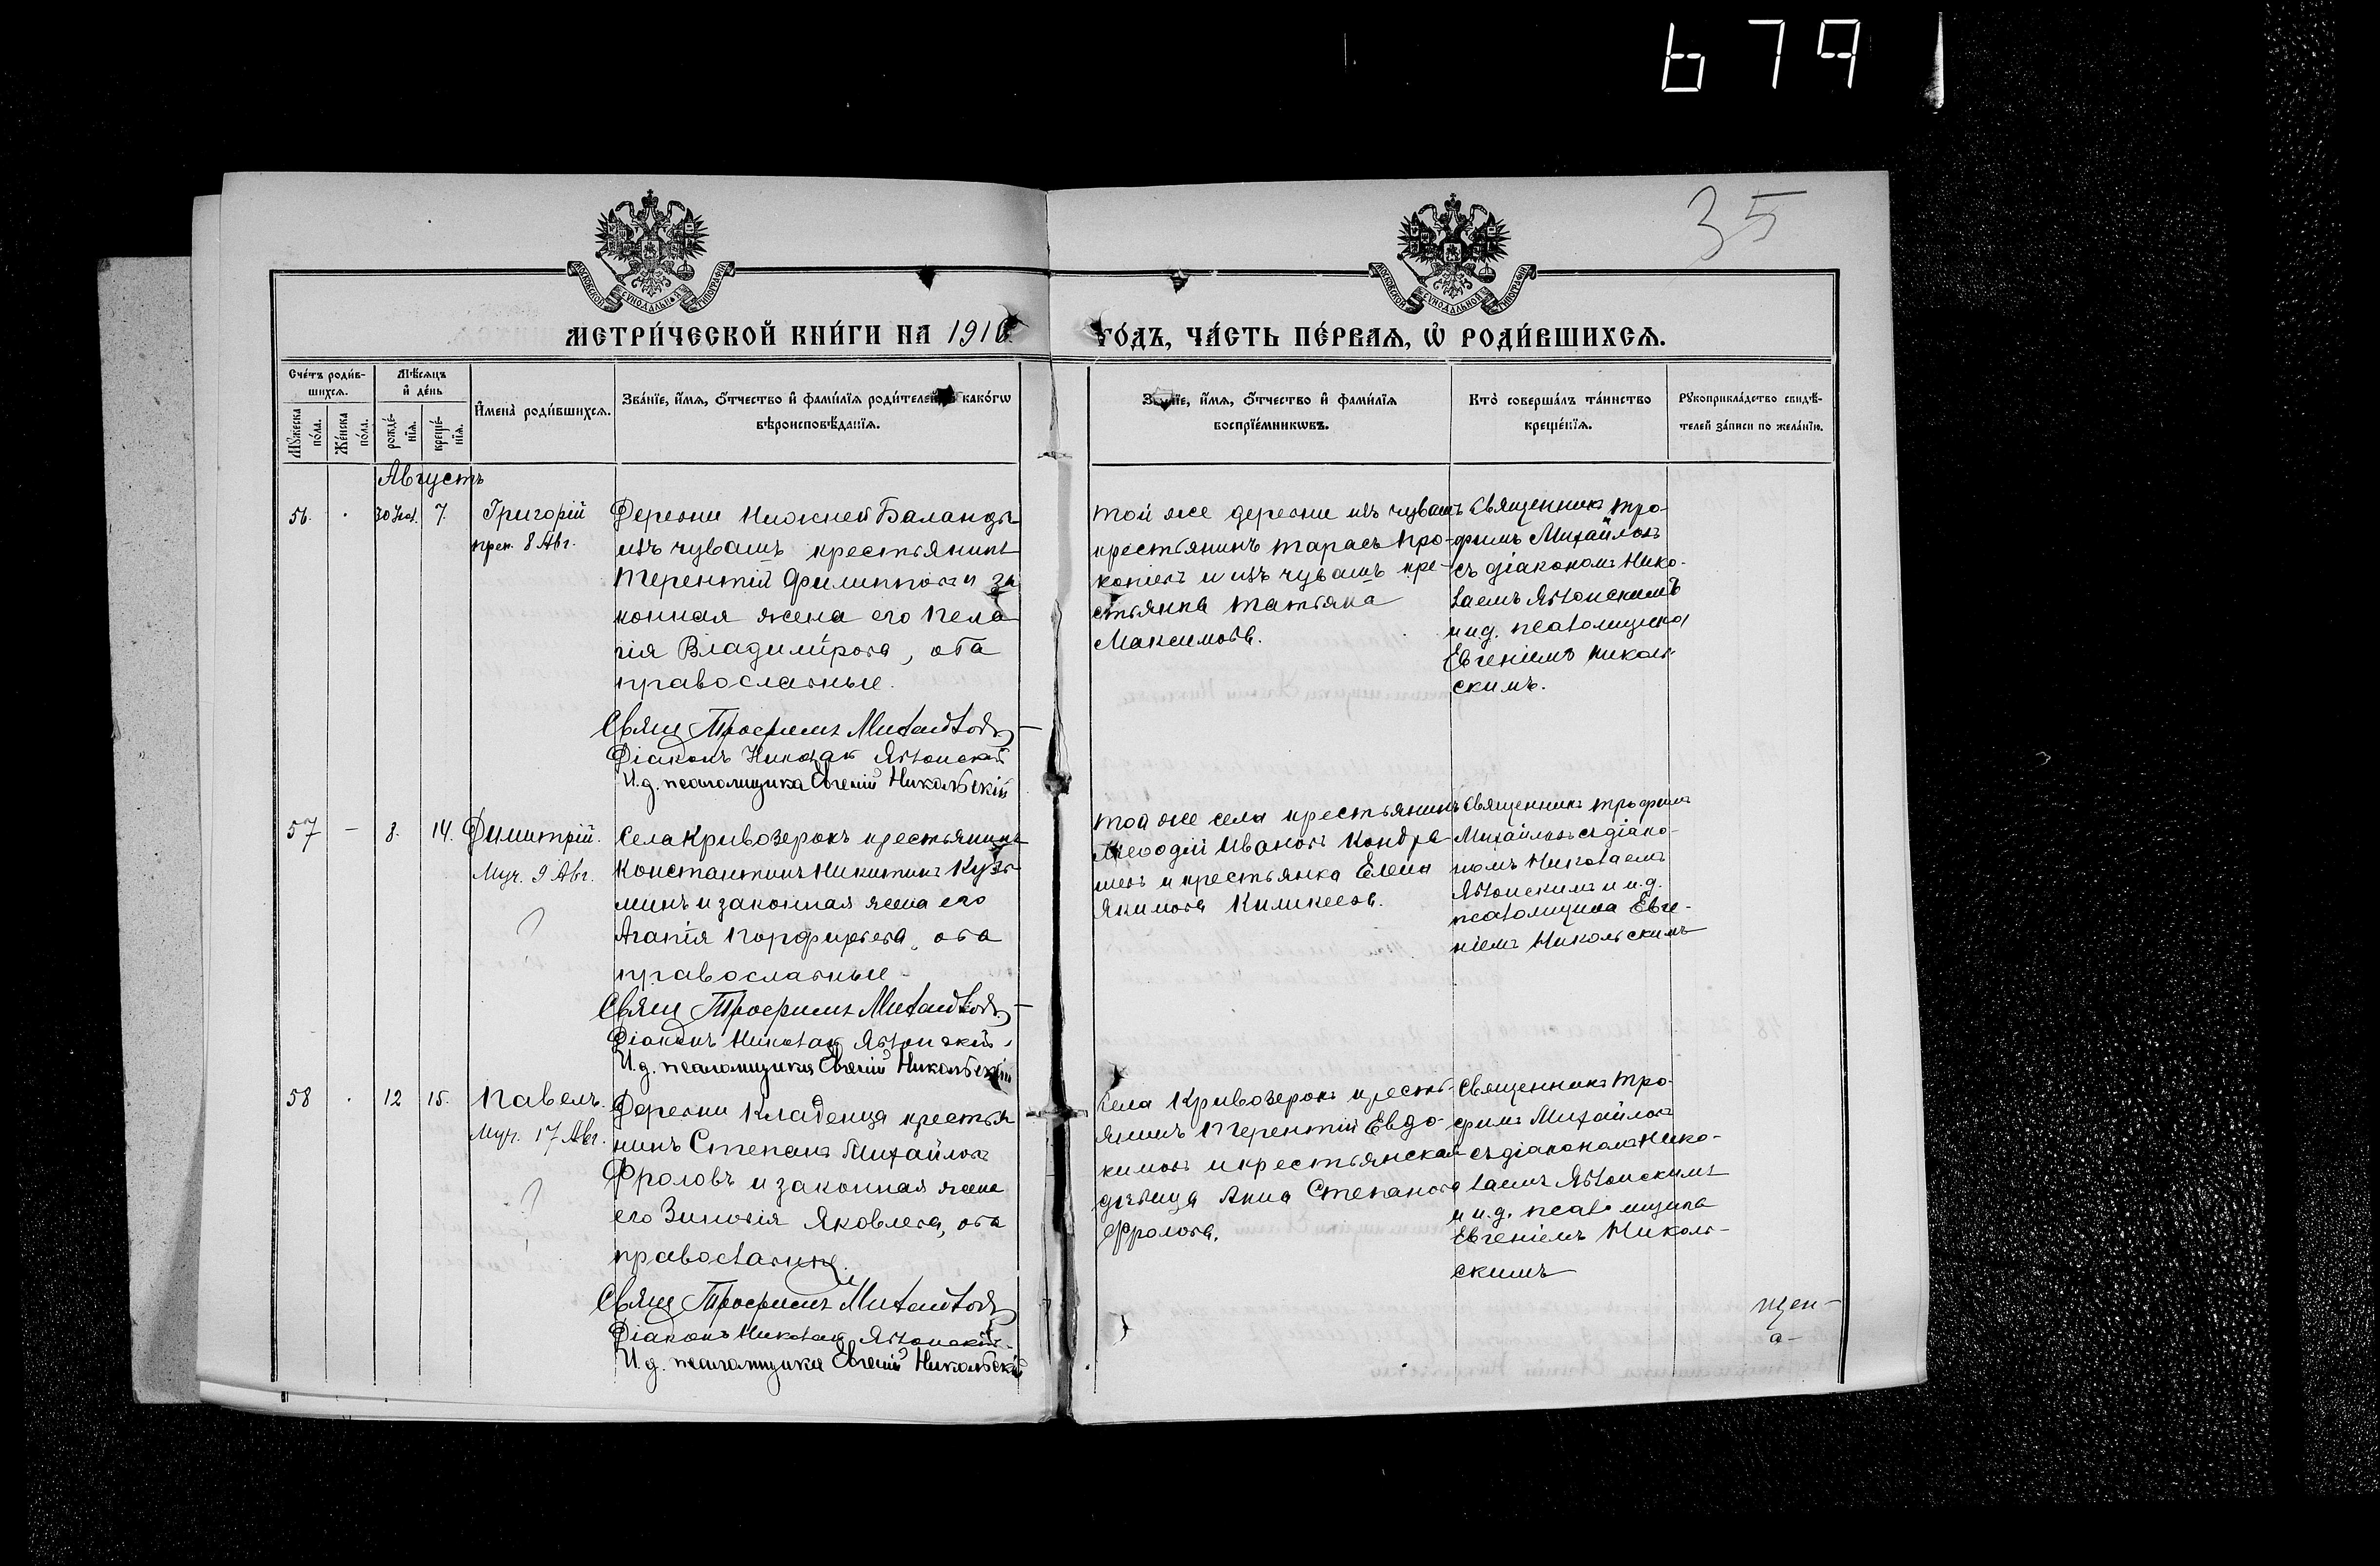 679
35
МОСКОВСКОЙ СУНОДАЛЬНОЙ ТИПОГРАФІИ
МОСКОВСКОЙ СУНОДАЛЬНОЙ ТИПОГРАФІИ
МЕТРИ́ЧЕСКОЙ КНИ́ГИ НА 1916 ГО́ДЪ, ЧА́СТЬ ПЕ́РВАѦ, Ѡ҆ РОДИ́ВШИХСѦ.
Сче́тъ роди́в-
шихсѧ.
Мꙋ́жеска по́ла.
Же́нска по́ла.
Мѣ́сѧцъ
и҆ де́нь
рожде́-нїѧ.
креще́-нїѧ.
И҆мена̀ роди́вшихсѧ.
Зва́нїе, и҆́мѧ, ѻ҆́тчество и҆ фами́лїѧ роди́телей, какогѡ
вѣроисповѣ́данїѧ.
Зва́нїе, и҆́мѧ, ѻ҆́тчество и҆ фами́лїѧ
воспрїе́мникѡвъ.
Кто̀ соверша́лъ та́инство
креще́нїѧ.
Рꙋкоприкла́дство свидѣ́-
телей за́писи по жела́нїю.
Августъ
56. · 30 Іюл. 7.
Григорій
преп. 8 Авг.
Деревни Нижней Баланды
изъ чувашъ крестьянинъ
Терентій Филипповъ и за
конная жена его Пела
гія Владимірова, оба
православные.
Свящ Трофимъ Михайловъ
Діаконъ Николай Яблонскій
И. д. псаломщика Евгеній Никольскій
той же деревни изъ чувашъ
крестьянинъ Тарасъ Про-
копіевъ и изъ чувашъ кре-
стьянка Татьяна
Максимова.
Священникъ Тро-
фимъ Михайловъ
съ діакономъ Нико-
лаемъ Яблонскимъ
и и.д. псаломщика
Евгеніемъ Николь-
скимъ.
57 – 8. 14.
Димитрій.
Муч. 9 Авг.
?
Села Кривозерокъ крестьянинъ
Константинъ Никитинъ Кузь-
минъ и законная жена его
Агапія Порфирьева, оба
православные
Свящ Трофимъ Михайловъ
Діаконъ Николай Яблонскій
И. д. псаломщика Евгеній Никольскій
того же села крестьянинъ
Меѳодій Ивановъ Кондра-
шевъ и крестьянка Елена
Якимова
Священникъ Трофимъ
Михайловъ съ діако-
номъ Николаемъ
Яблонскимъ и и.д.
псаломщика Евге-
ніемъ Никольскимъ
58 · 12 15.
Павелъ.
Муч. 17 Авг.
?
Деревни Кладенца крестья
нинъ Степанъ Михайловъ
Фроловъ и законная жена
его Зиновія Яковлева, оба
православные.
Свящ Трофимъ Михайловъ
Діаконъ Николай Яблонскій
И. д. псаломщика Евгеній Никольскій
села Кривозерокъ кресть-
янинъ Терентій Евдо-
кимовъ и крестьянская
дѣвица Анна Степанова
Фролова.
Священникъ Тро-
фимъ Михайловъ
съ діакономъ Нико-
лаемъ Яблонскимъ
и и.д. псаломщика
Евгеніемъ Николь-
скимъ
щен-
а-